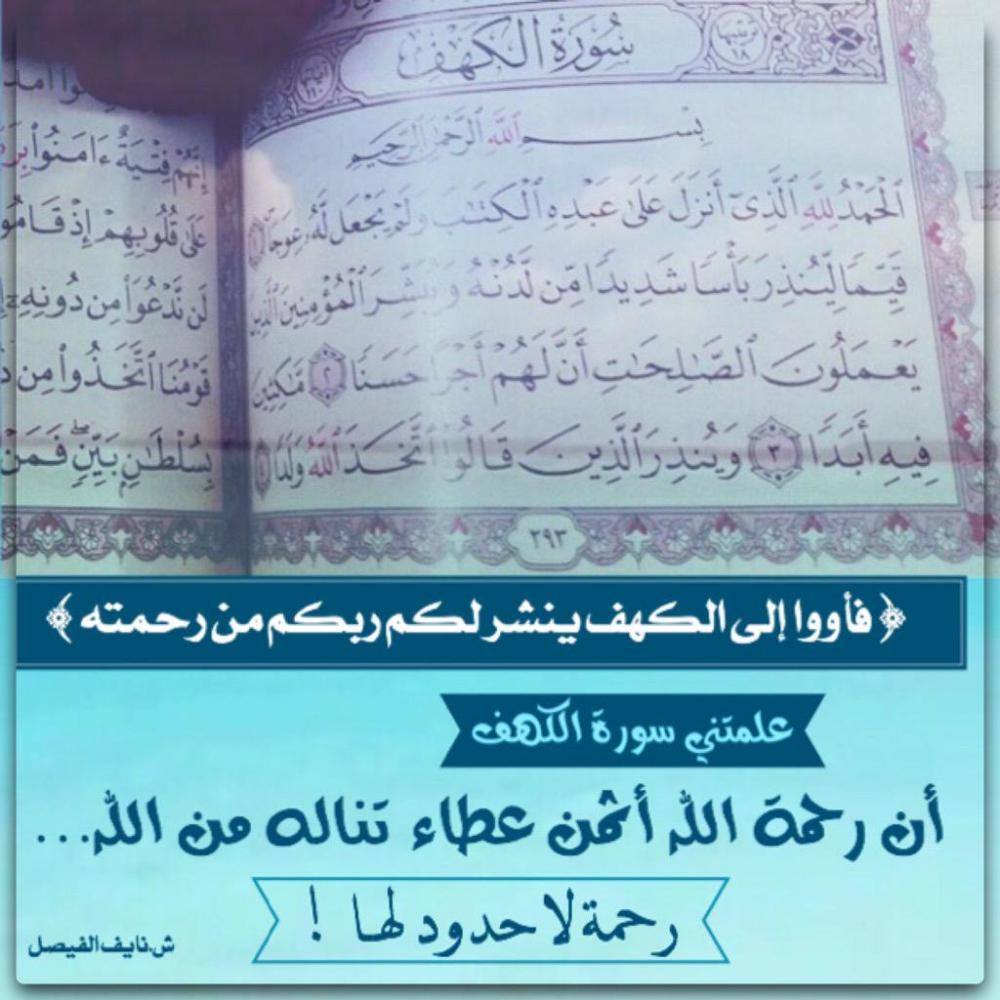 سُورَةُ الكَهْفِ
ترتيبها ١٨
آياتها ١١٠
بِسْمِ ٱللَّهِ ٱلرَّحْمَٰنِ ٱلرَّحِيمِ
ٱلْحَمْدُ لِلَّهِ ٱلَّذِىٓ أَنزَلَ عَلَىٰ عَبْدِهِ ٱلْكِتَٰبَ وَلَمْ يَجْعَل لَّهُۥ عِوَجَا ١
قَيِّمًا لِّيُنذِرَ بَأْسًا شَدِيدًا مِّن لَّدُنْهُ وَيُبَشِّرَ ٱلْمُؤْمِنِينَ ٱلَّذِينَ
يَعْمَلُونَ ٱلصَّٰلِحَٰتِ أَنَّ لَهُمْ أَجْرًا حَسَنًا ٢ مَّٰكِثِينَ
فِيهِ أَبَدًا ٣ وَيُنذِرَ ٱلَّذِينَ قَالُوا۟ ٱتَّخَذَ ٱللَّهُ وَلَدًا ٤
٢٩٣
إِنَّهُمْ فِتْيَةٌ ءَامَنُوا۟
عَلَىٰ قُلُوبِهِمْ إِذْ قَامُوا۟
لَن نَّدْعُوَا۟ مِن دُونِهِۦٓ
قَوْمُنَا ٱتَّخَذُوا۟ مِن
بِسُلْطَٰنٍۭ بَيِّنٍ ۖ فَمَنْ
﴿ فأووا إلى الكهف ينشر لكم ربكم من رحمته ﴾
علمتني سورة الكهف
أن رحمة الله أثمن عطاء تناله من الله...
رحمة لا حدود لها !
ش.نايف الفيصل